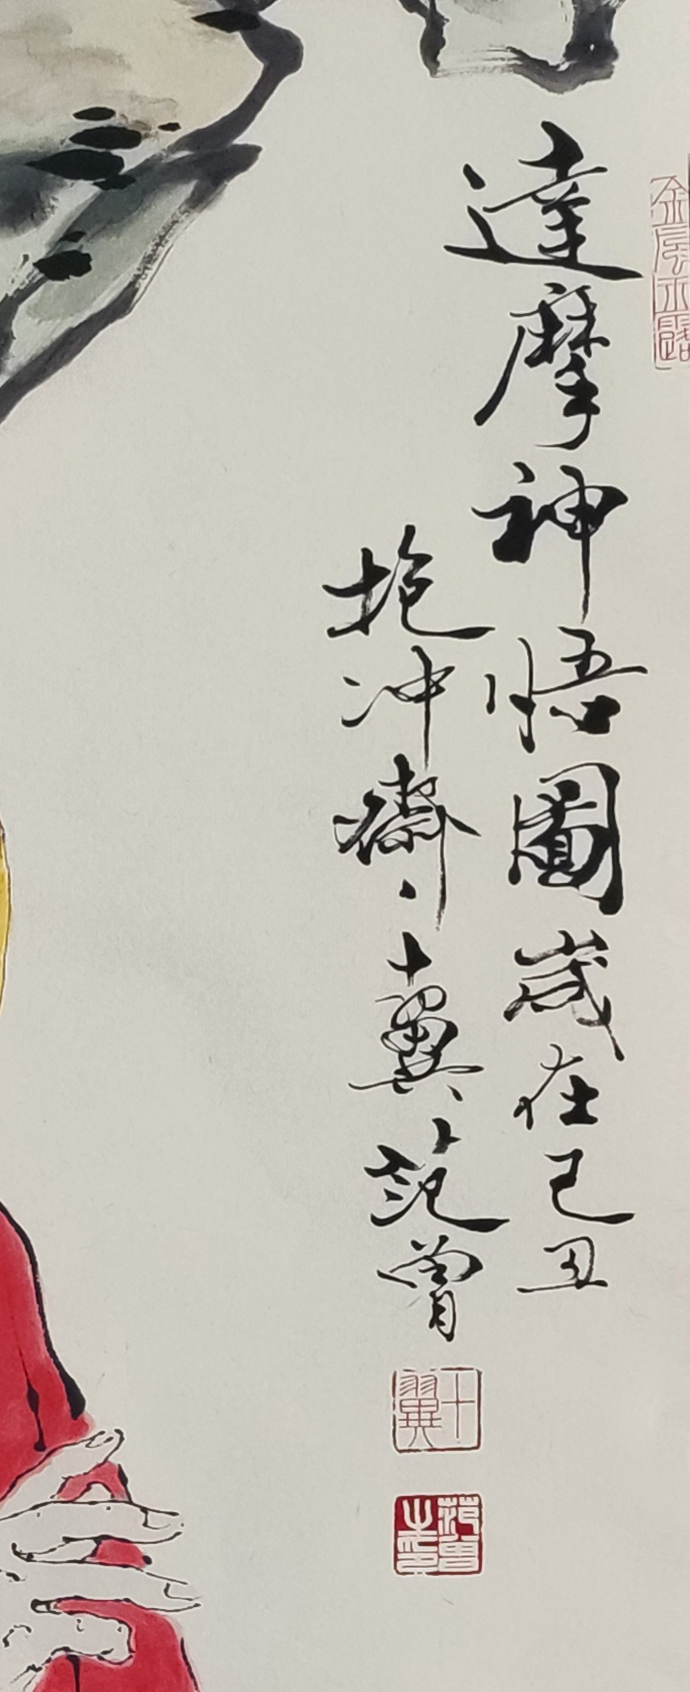 達摩神悟圖歲在己丑
抱冲齋十翼范曾
十翼
范曾之印